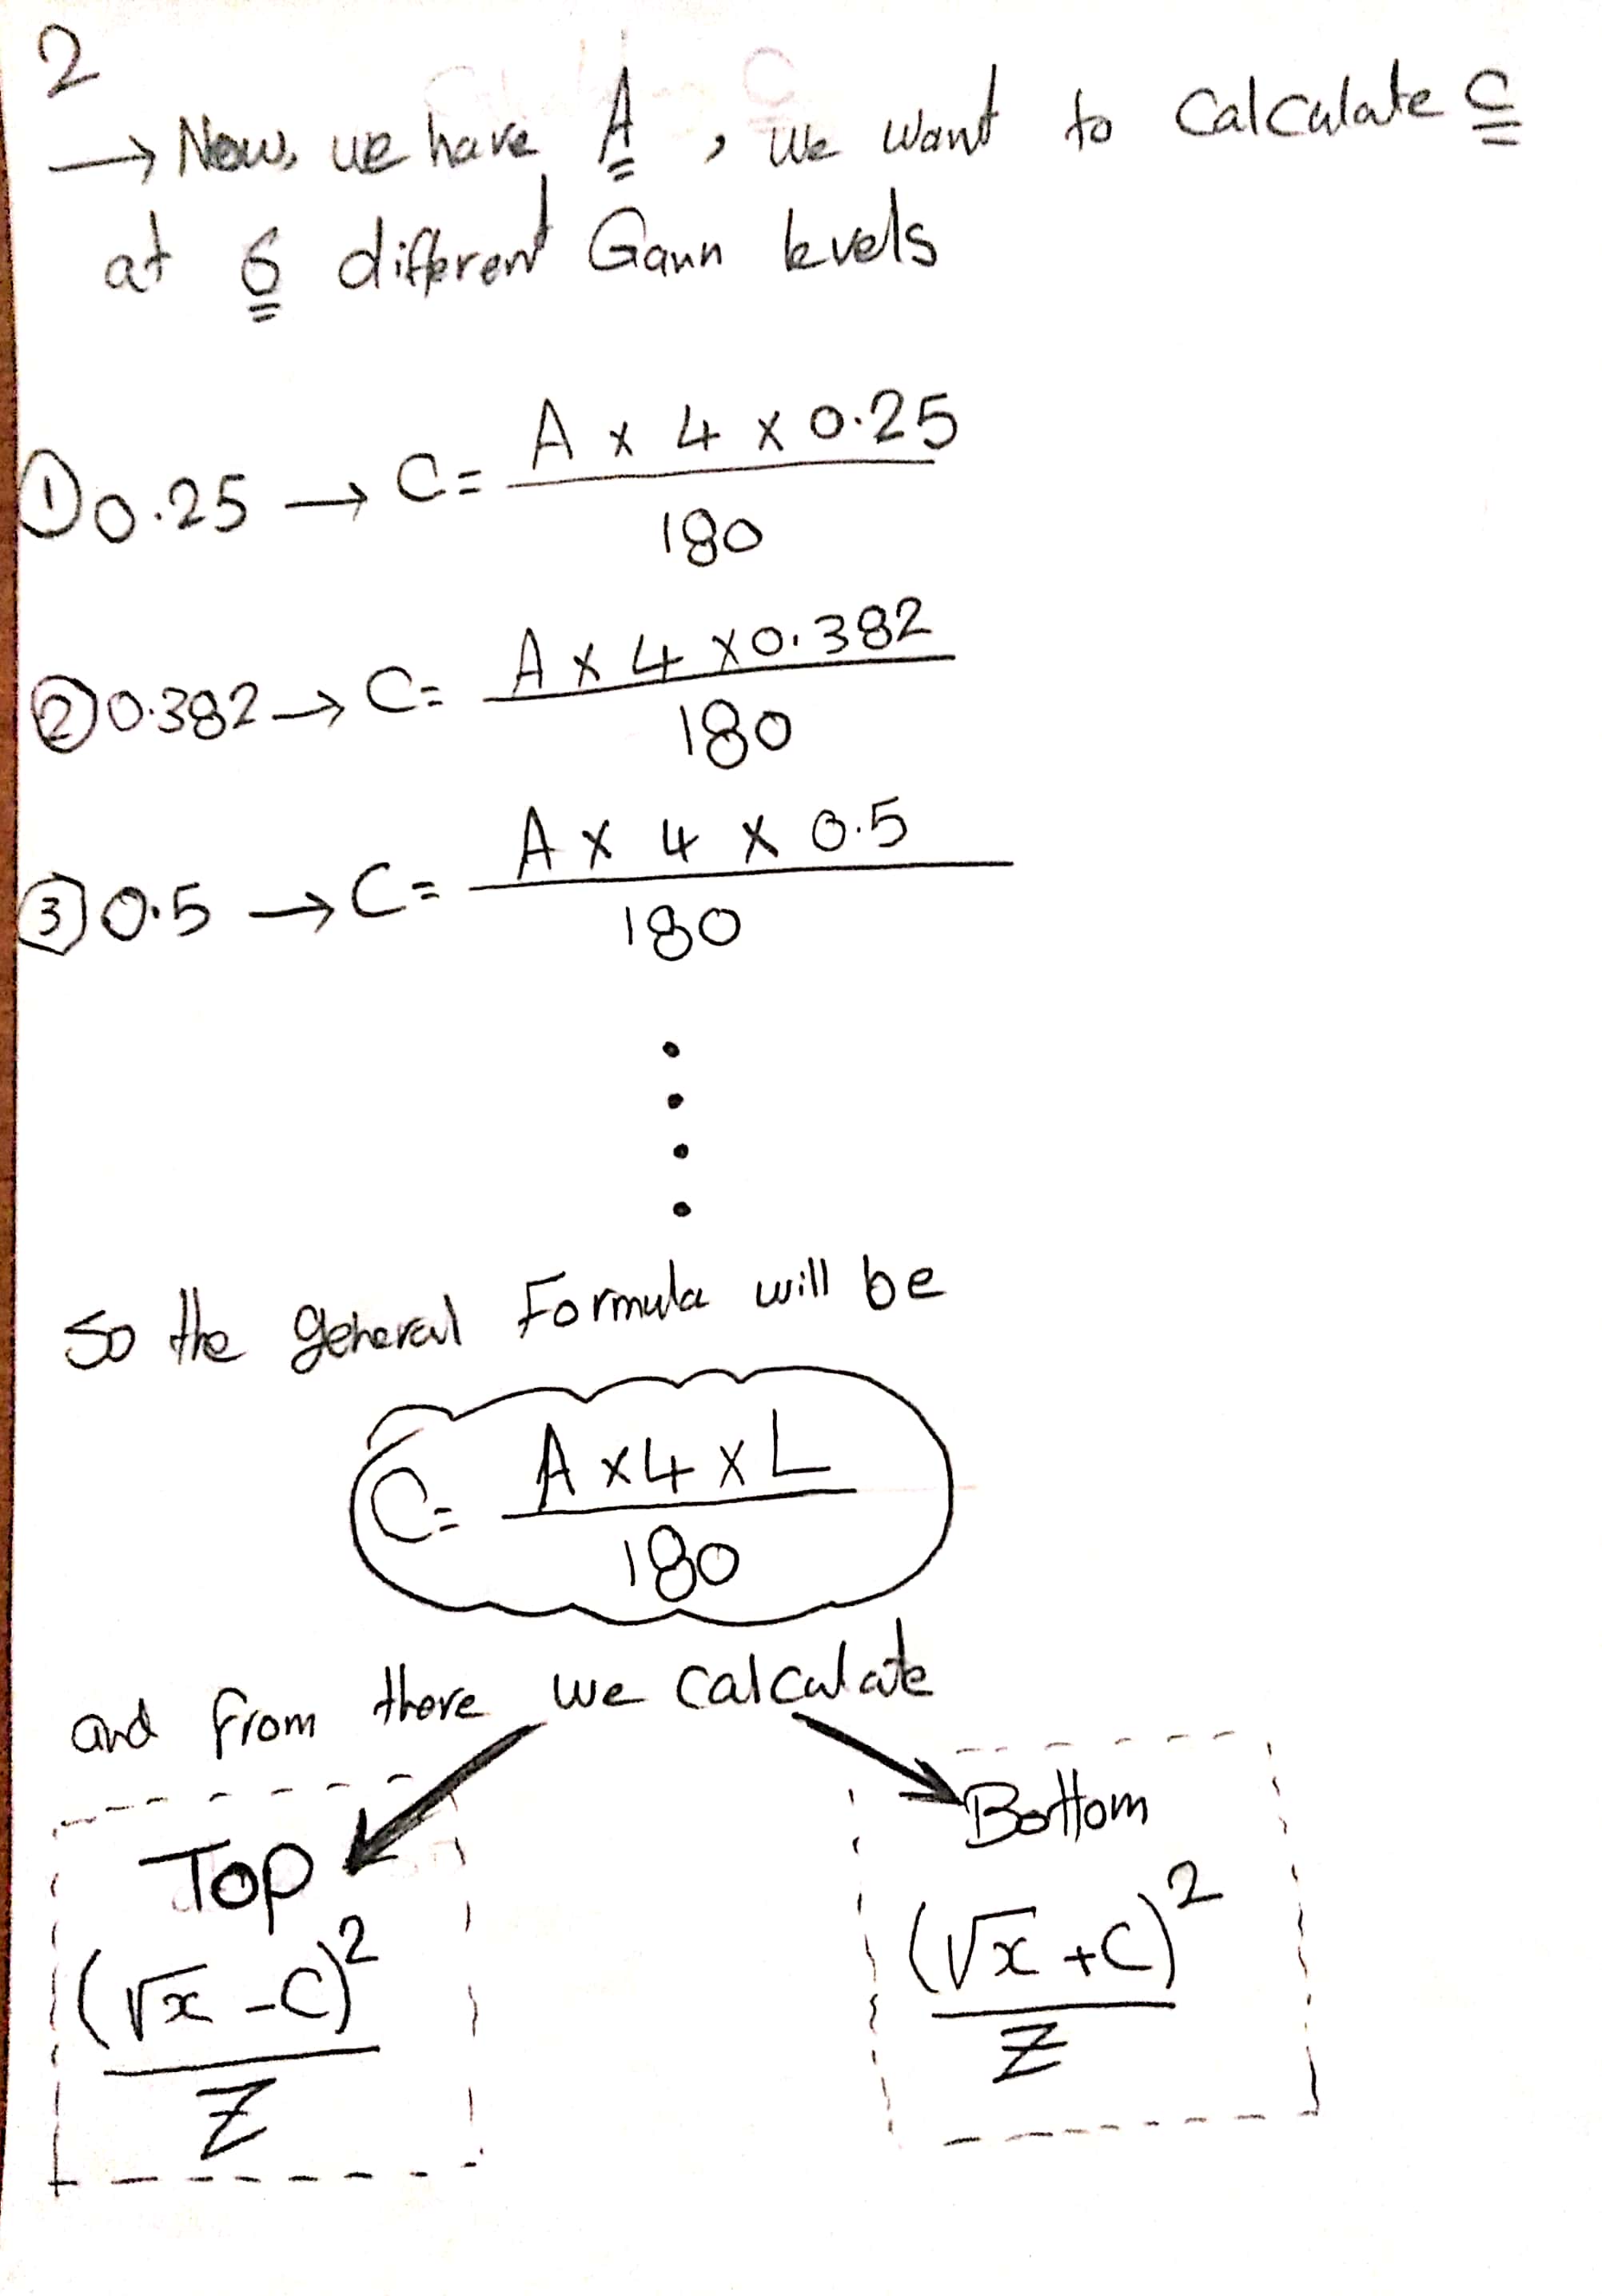 2
→ Now, we have A, we want to Calculate C
at 6 different Gann levels
① 0.25 → C = A x 4 x 0.25 / 180
② 0.382 → C = A x 4 x 0.382 / 180
③ 0.5 → C = A x 4 x 0.5 / 180
So the general Formula will be
C = A x 4 x L / 180
and from there we calculate
Top
(√x - C)² / Z
Bottom
(√x + C)² / Z